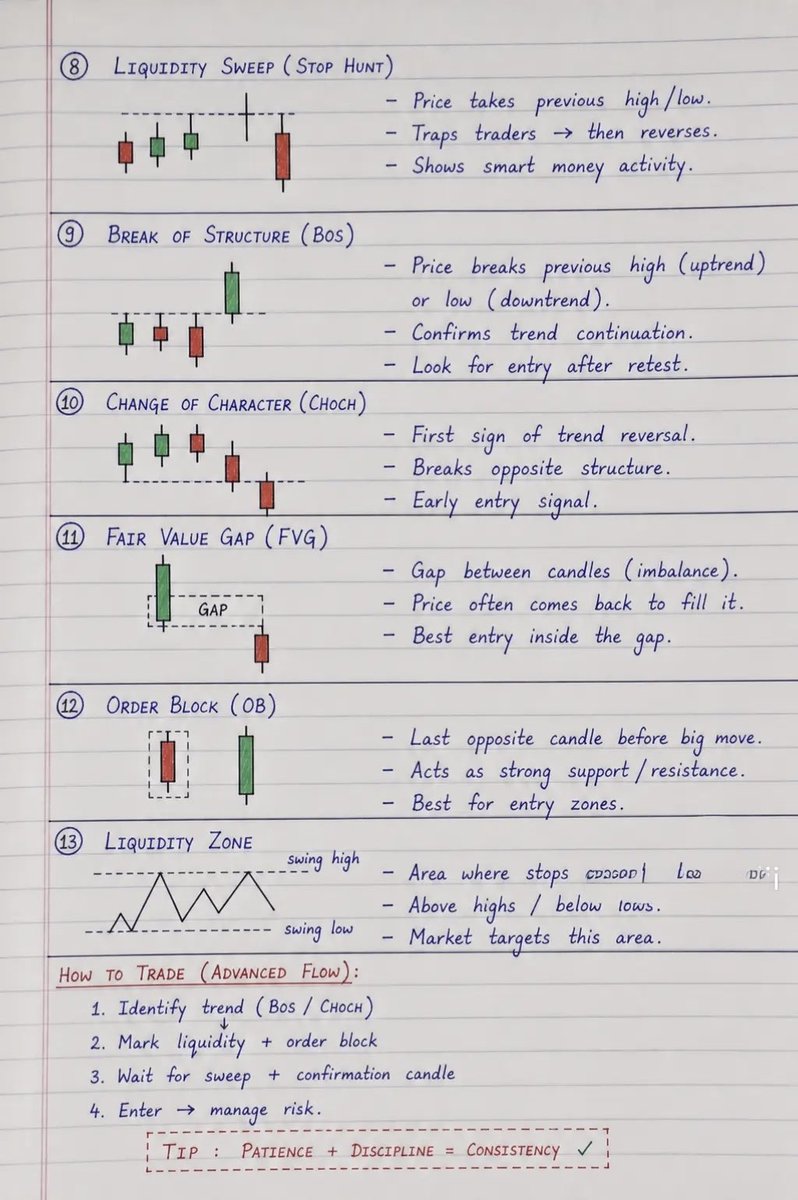 ⑧ LIQUIDITY SWEEP (STOP HUNT)
- Price takes previous high/low.
- Traps traders → then reverses.
- Shows smart money activity.
⑨ BREAK OF STRUCTURE (BOS)
- Price breaks previous high (uptrend)
or low (downtrend).
- Confirms trend continuation.
- Look for entry after retest.
⑩ CHANGE OF CHARACTER (CHOCH)
- First sign of trend reversal.
- Breaks opposite structure.
- Early entry signal.
⑪ FAIR VALUE GAP (FVG)
GAP
- Gap between candles (imbalance).
- Price often comes back to fill it.
- Best entry inside the gap.
⑫ ORDER BLOCK (OB)
- Last opposite candle before big move.
- Acts as strong support/resistance.
- Best for entry zones.
⑬ LIQUIDITY ZONE
swing high
swing low
- Area where stops
- Above highs / below lows.
- Market targets this area.
HOW TO TRADE (ADVANCED FLOW):
1. Identify trend (BOS / CHOCH)
↓
2. Mark liquidity + order block
3. Wait for sweep + confirmation candle
4. Enter → manage risk.
TIP : PATIENCE + DISCIPLINE = CONSISTENCY ✓